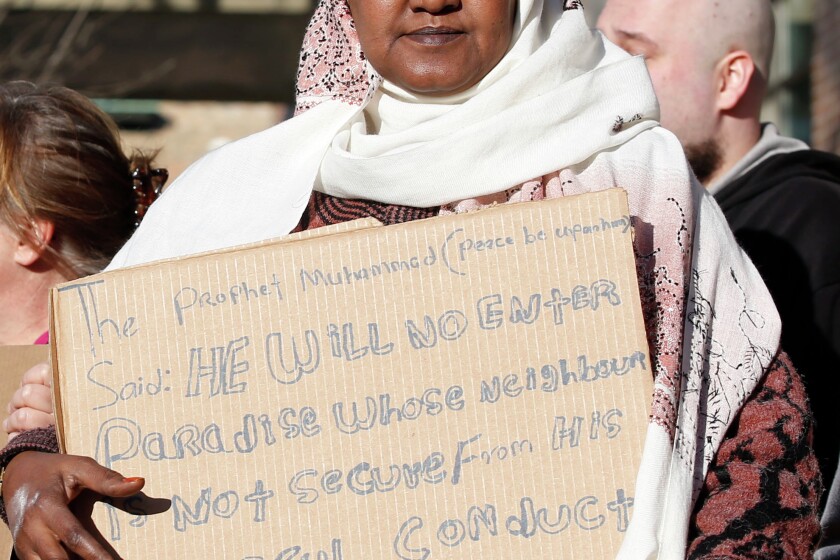 The Prophet Muhammad (Peace be upon him)
Said: HE WILL NO ENTER
PARADISE WHOSE NEIGHBOUR
IS NOT SECURE FROM HIS
CONDUCT